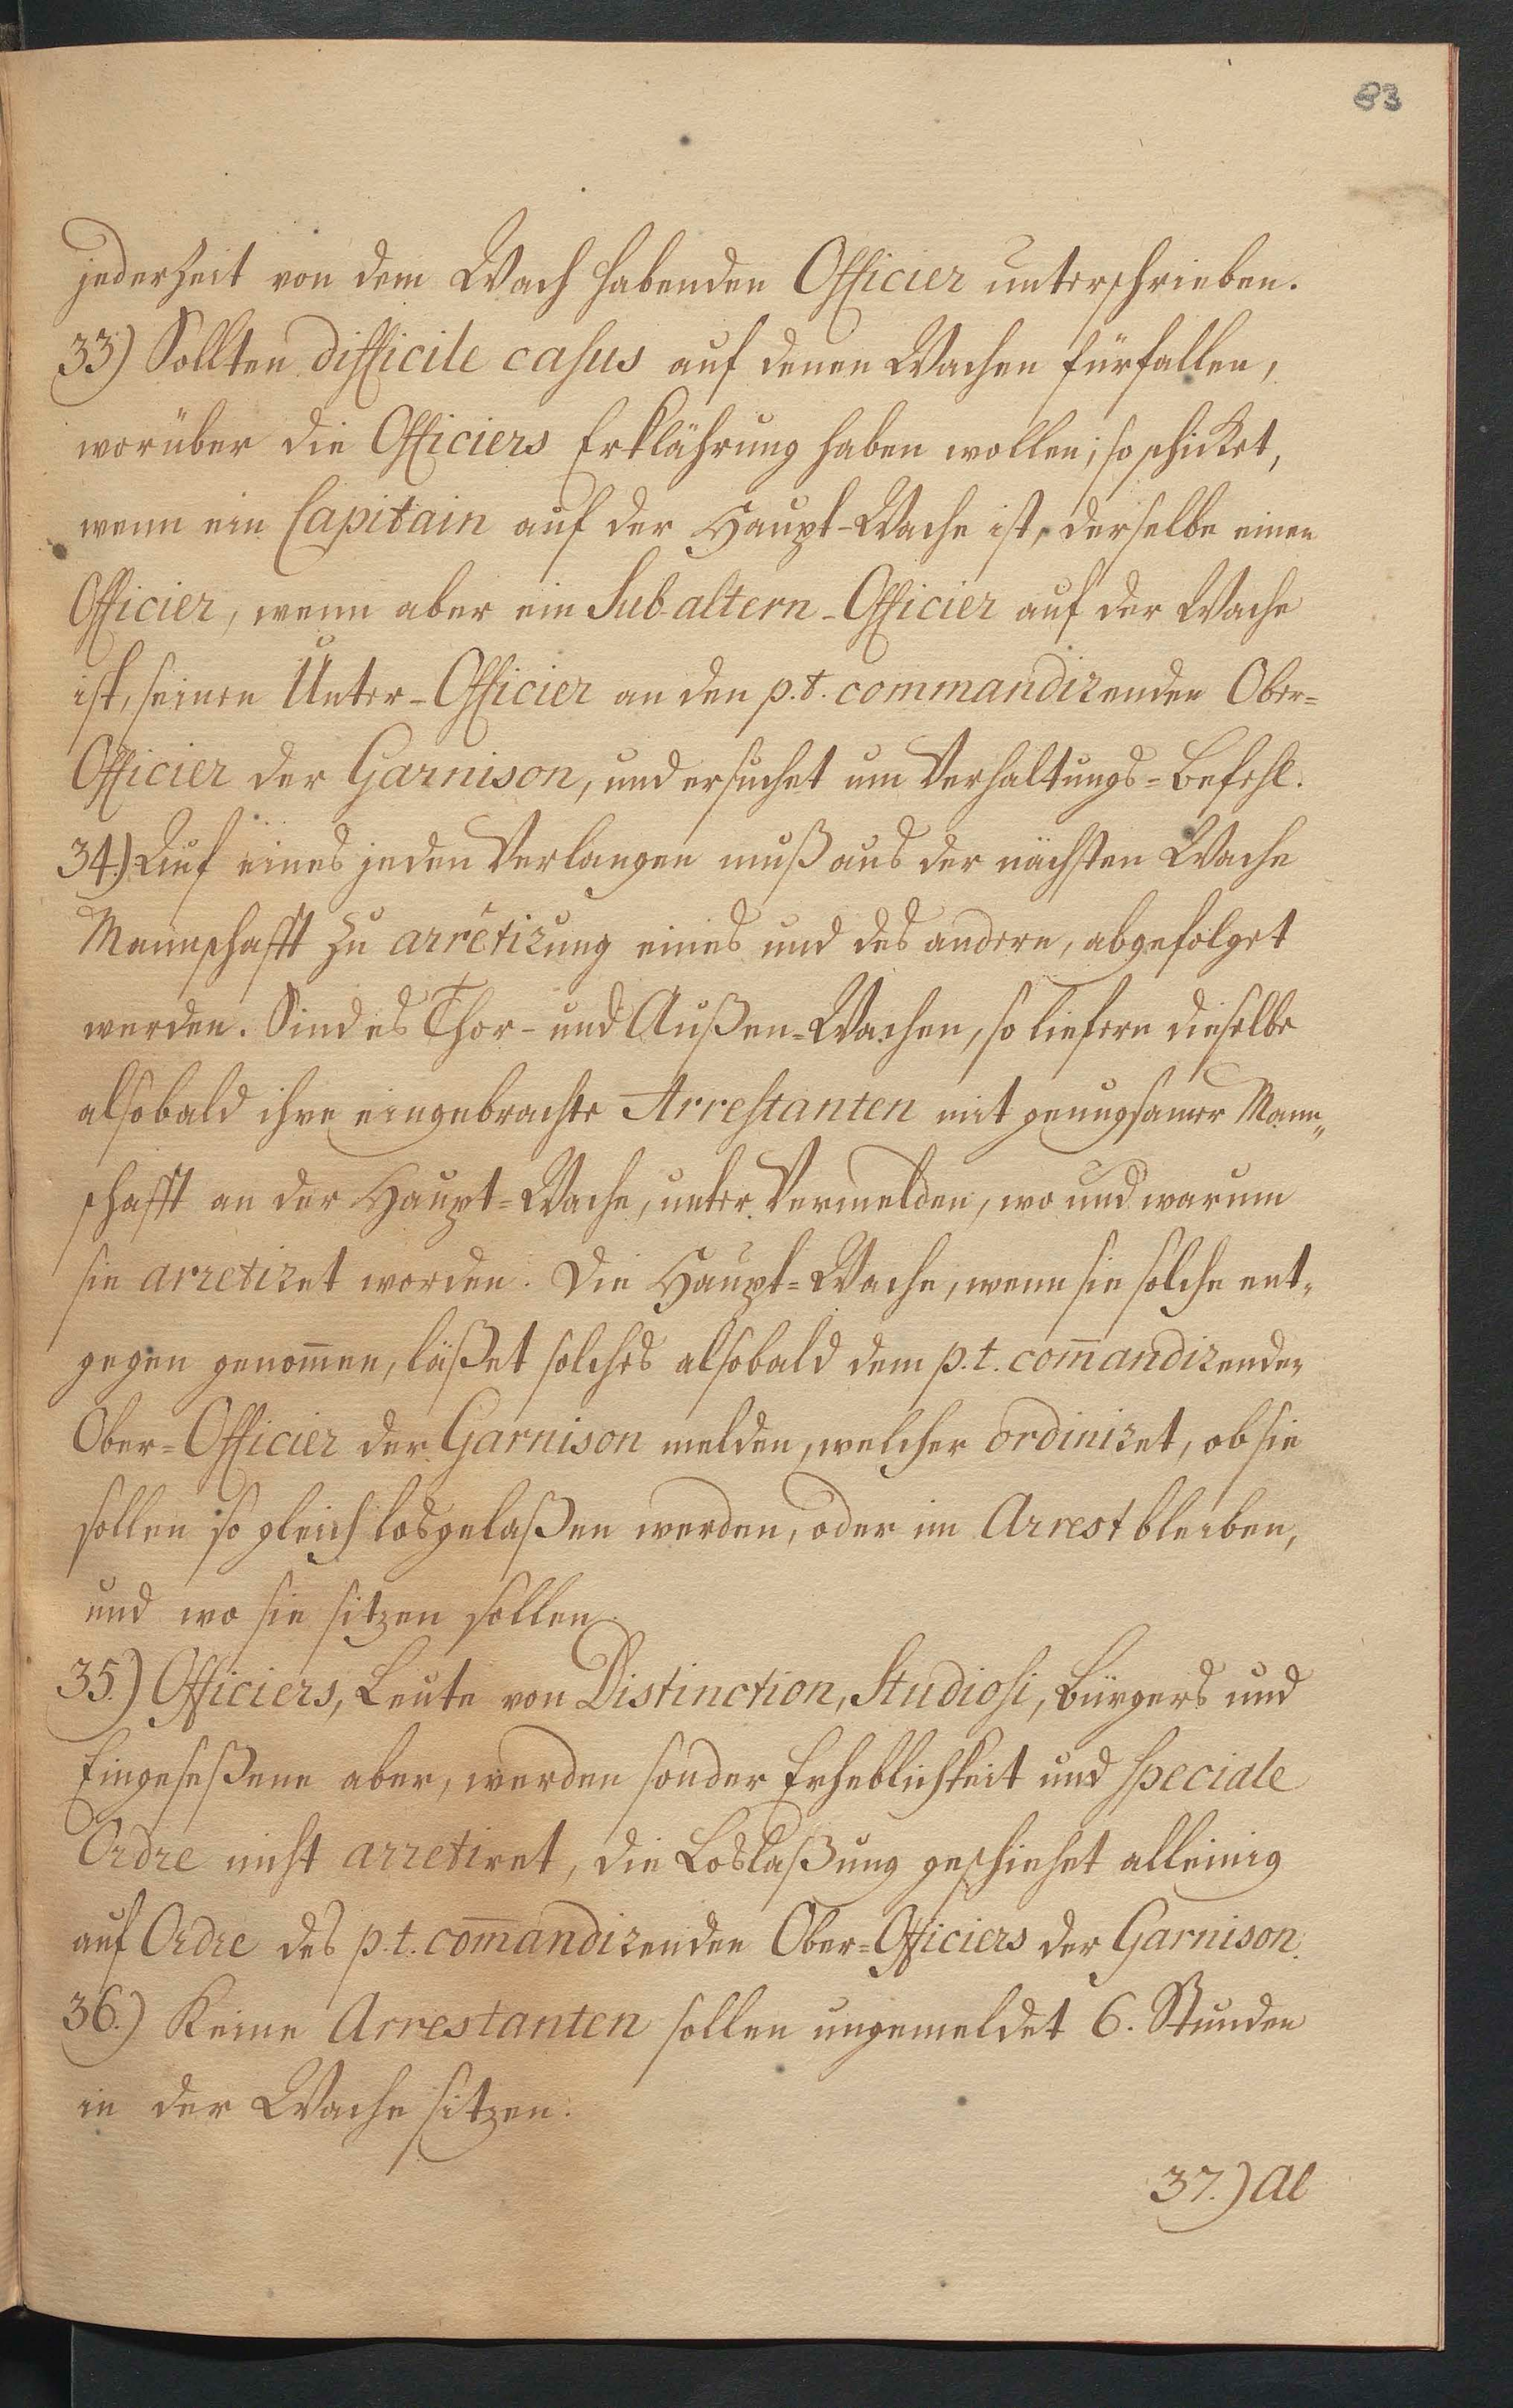 83
jederzeit von dem Wach habenden Officier unterschrieben.
33.) Sollten difficile casus auf denen Wachen fürfallen,
worüber die Officiers Erklährung haben wollen; so schicket,
wenn ein Capitain auf der Haupt-Wache ist, derselbe einen
Officier, wenn aber ein Sub-altern-Officier auf der Wache
ist, seinen Unter-Officier an den p.t. commandirenden Ober=
Officier der Garnison, und ersuchet um Verhaltungs=Befehl.
34.) Auf eines jeden Verlangen muß aus der nächsten Wache
Mannschafft zu arrêtirung eines und des andern, abgefolget
werden. Sind es Thor- und Außen=Wachen, so liefern dieselbe
alsobald ihre eingebrachte Arrestanten mit genugsamer Mann„
schafft an der Haupt=Wache, unter Vermelden, wo und warum
sie arretiret worden. Die Haupt=Wache, wenn sie solche ent„
gegen genom̅en, läßet solches alsobald dem p.t. com̅andirenden
Ober=Officier der Garnison melden, welcher ordiniret, ob sie
sollen so gleich losgelaßen werden, oder im Arrest bleiben,
und wo sie sitzen sollen.
35.) Officiers, Leute von Distinction, Studiosi, Bürgers und
Eingeseßene aber, werden sonder Erheblichkeit und speciale
Ordre nicht arretiret, die Loslaßung geschiehet alleinig
auf Ordre des p.t. com̅andirenden Ober=Officiers der Garnison.
36.) Keine Arrestanten sollen ungemeldet 6. Stunden
in der Wache sitzen.
37.) Al